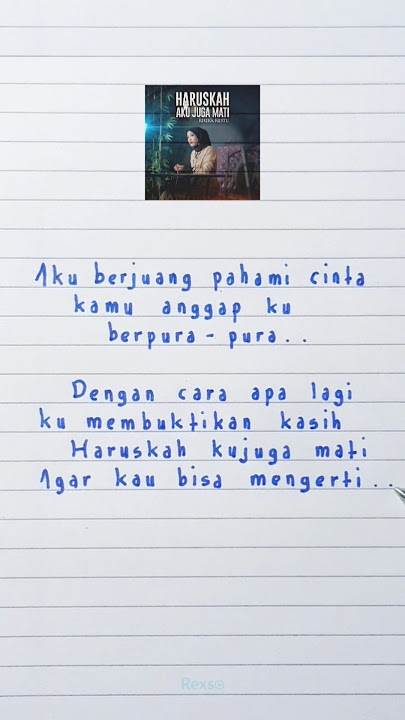 HARUSKAH
AKU JUGA MATI
Aku berjuang pahami cinta
kamu anggap ku
berpura - pura . .
Dengan cara apa lagi
ku membuktikan kasih
Haruskah kujuga mati
Agar kau bisa mengerti . .
Rexso